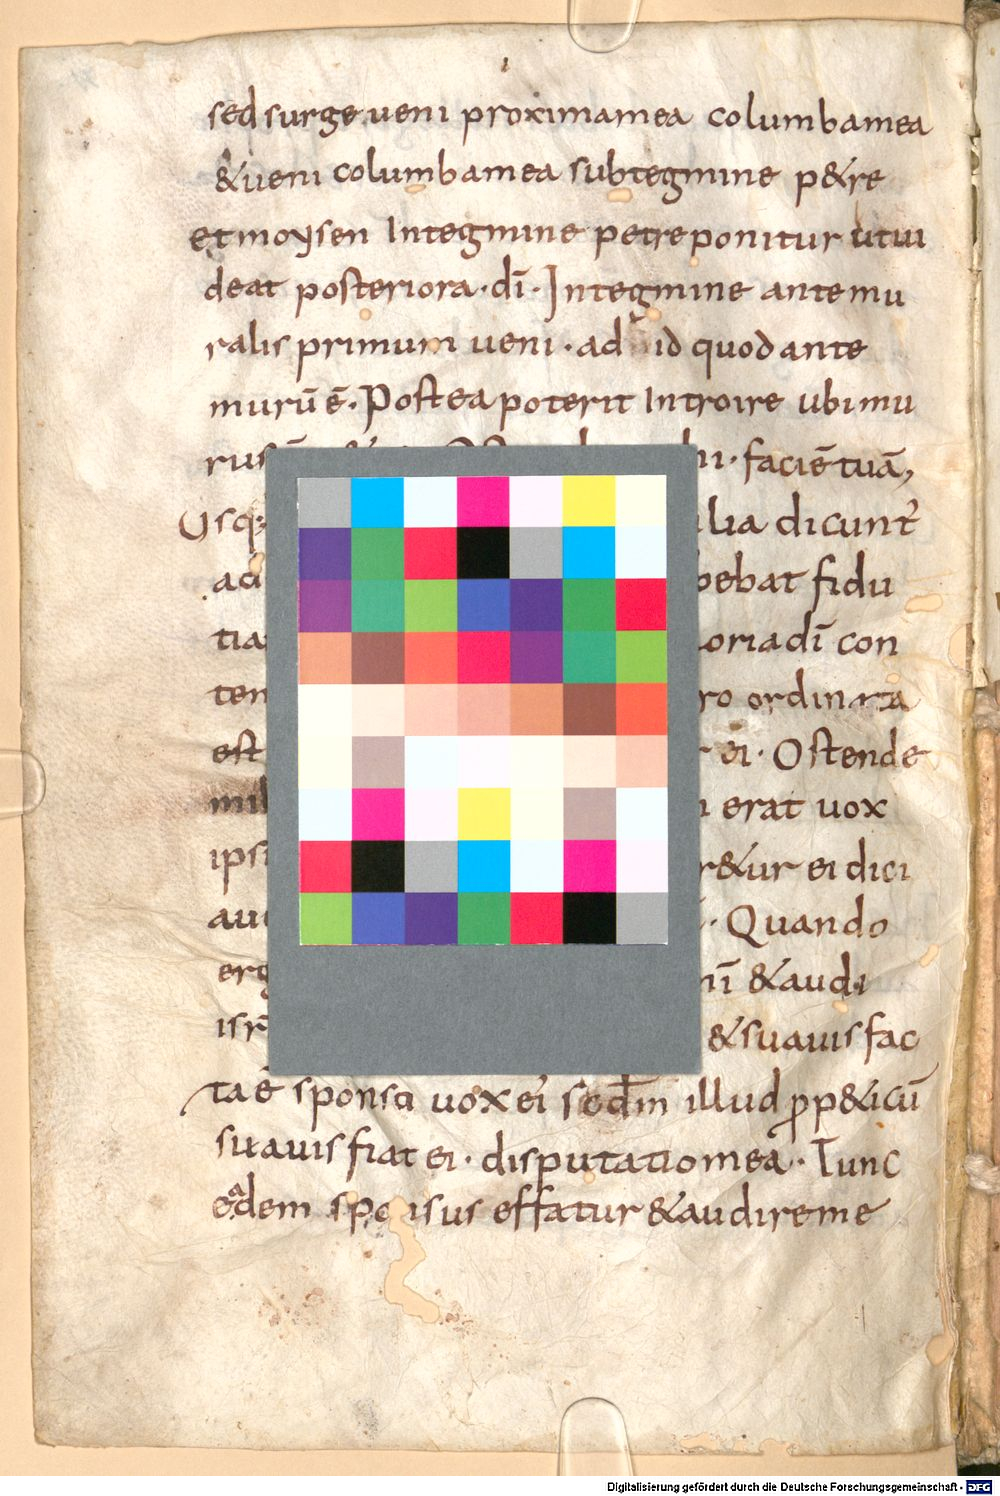 sed surge ueni proximamea columbamea
&ueni columbamea subtegmine p&re
etmoysen Integmine petreponitur utui
deat posteriora·dī·Integmine antemu
ralis primum ueni·ad id quodante
murū ē·Postea poterit Introire ubimu
rus hi·faciētuā,
Usq; lia dicunt
bebat fidu
tia oriadī con
ten ro ordinata
est ei·Ostende
erat uox
ipsi r&ur ei dici
·Quando
&audi
isr &suauisfac
taē sponsa uox ei sedm illud pp&icū
suauisfiat ei·disputatiomea·Tunc
eadem sponsus effatur &audireme
Digitalisierung gefördert durch die Deutsche Forschungsgemeinschaft - DFG